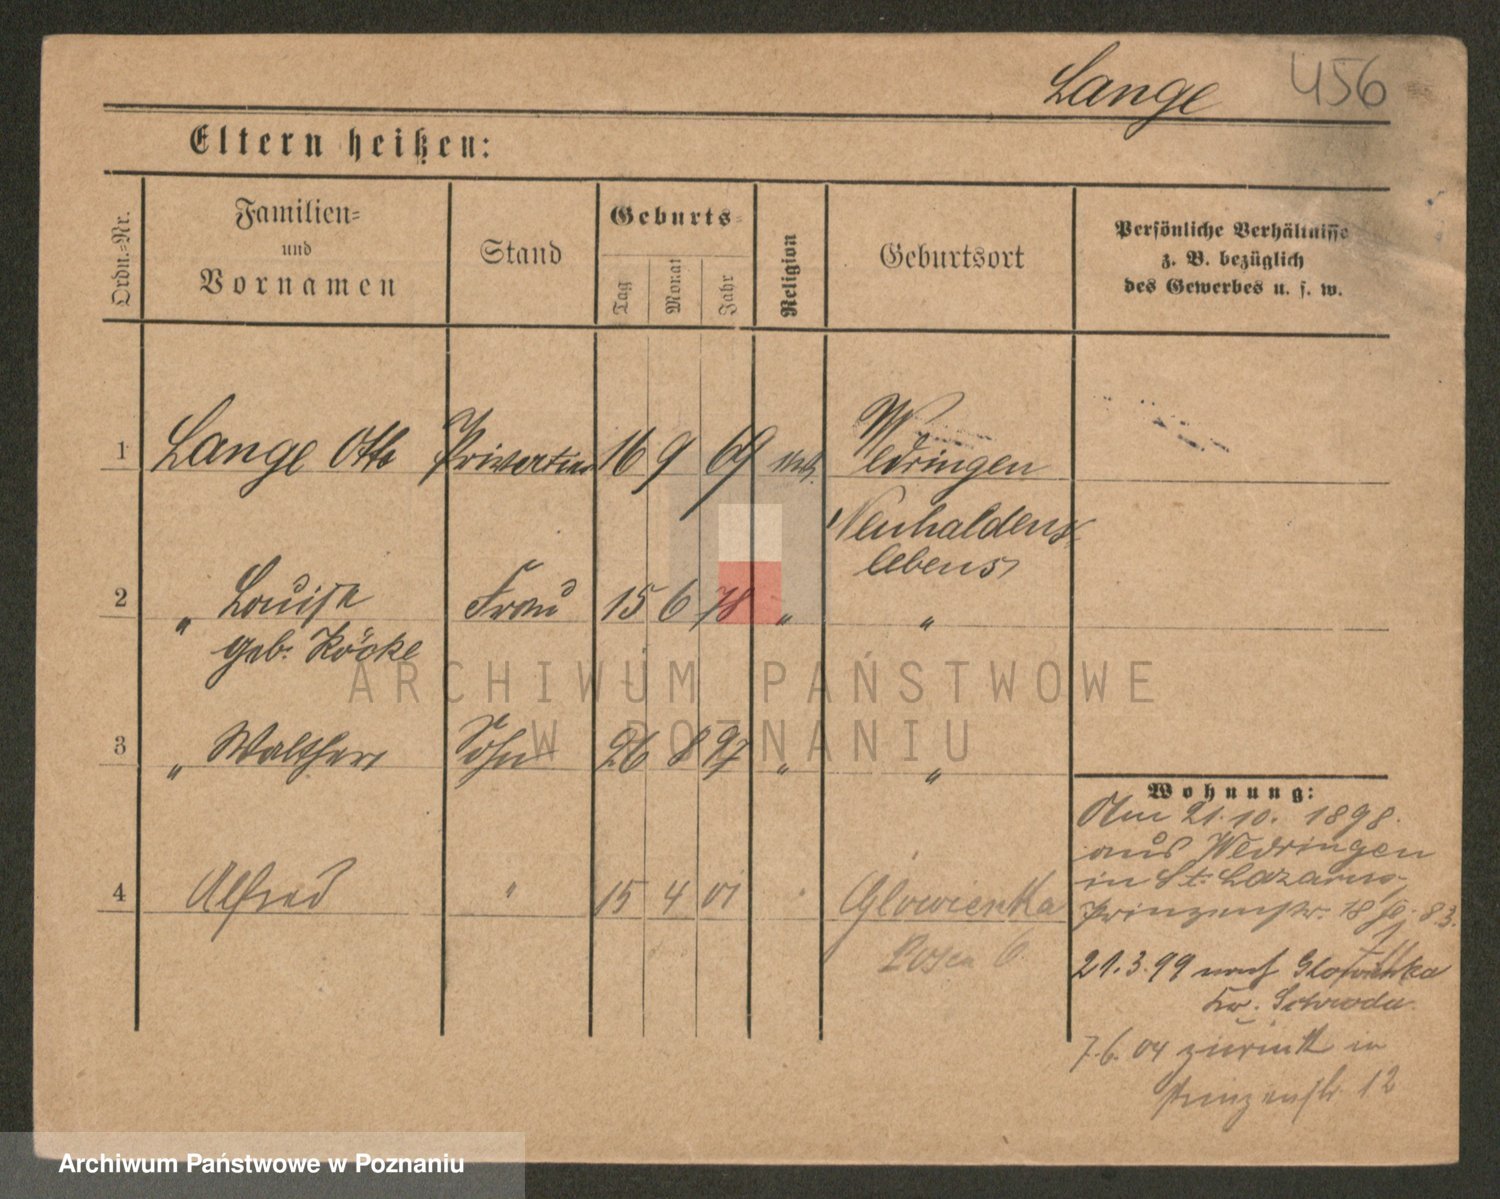 Lange 456
Eltern heißen:
Ordn.=Nr.
Familien=
und
Vornamen
Stand
Geburts=
Tag
Monat
Jahr
Religion
Geburtsort
Persönliche Verhältnisse
z. B. bezüglich
des Gewerbes u. s. w.
1 Lange Otto 16 9 69 Wedringen
Neuhaldens
lebens
2 " Louise Frau 15 6 78 " "
geb. Kööke
3 " Walther Sohn 26 8 97 " "
4 Alfred " 15 4 01 " Glowienka
Posen O.
Wohnung:
Am 21.10. 1898.
aus Wedringen
in St. Lazarus,
Prinzenstr. 18
21.3.99 nach Glowienka
Kr. Schroda.
7.6.04 zurück in
Prinzenstr. 12
ARCHIWUM PAŃSTWOWE
W POZNANIU
Archiwum Państwowe w Poznaniu